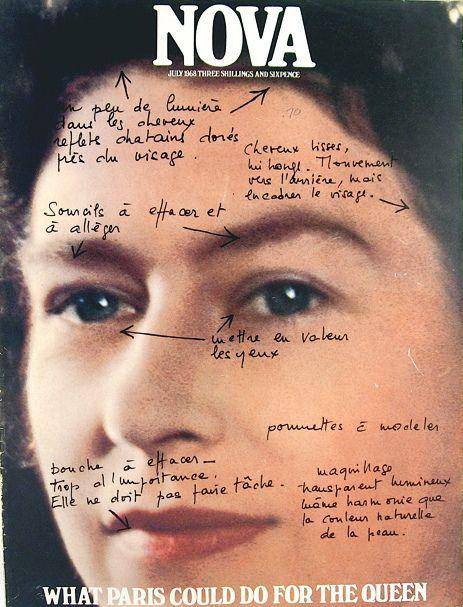 NOVA
JULY 1968 THREE SHILLINGS AND SIXPENCE
un peu de lumière
dans les cheveux
reflets chatains dorés
près du visage.
Cheveux lisses,
mi longs. Mouvement
vers l'arrière, mais
encadrer le visage.
Sourcils à effacer et
à alléger
mettre en valeur
les yeux
pommettes à modeler
bouche à effacer_
trop d'importance.
Elle ne doit pas faire tâche.
maquillage
transparent lumineux
même harmonie que
la couleur naturelle
de la peau.
WHAT PARIS COULD DO FOR THE QUEEN